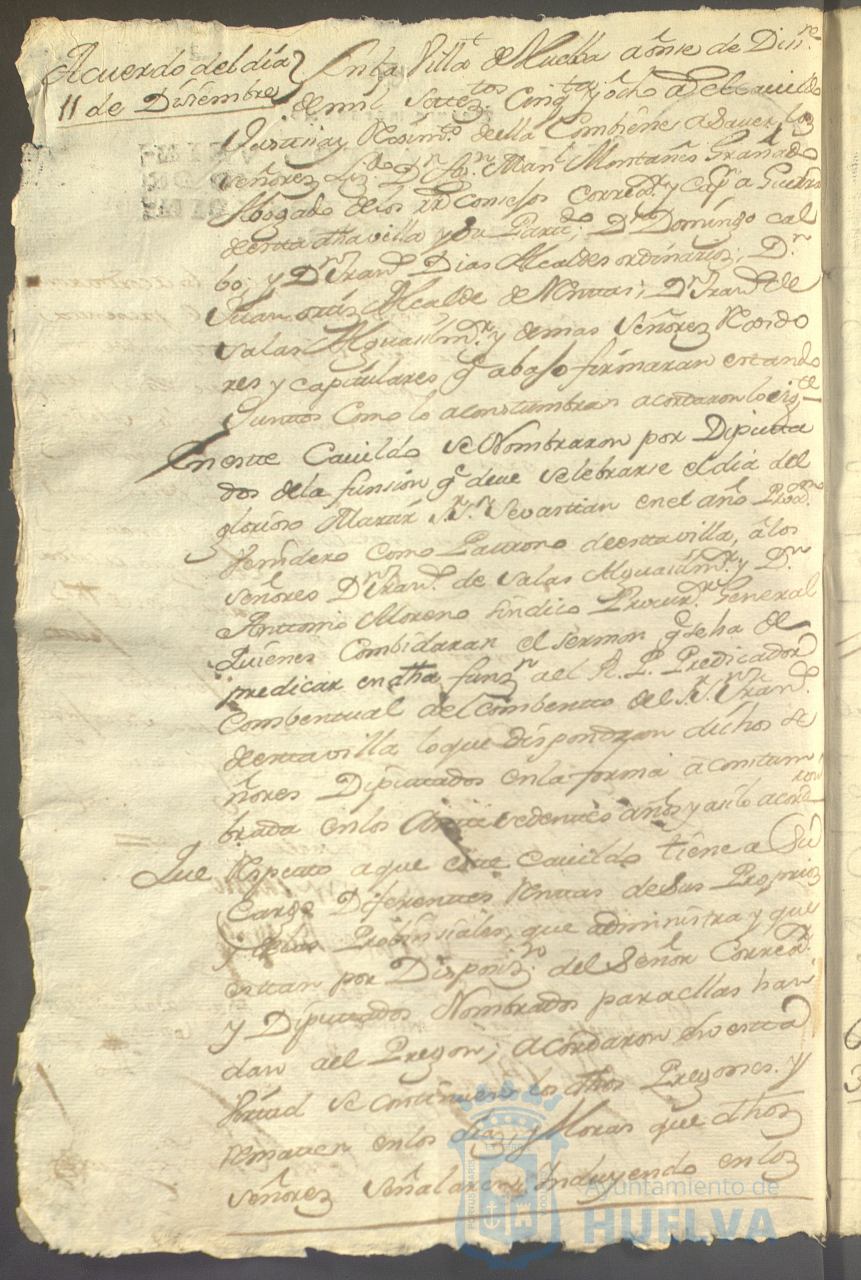 Acuerdo del dia
11 de Disiembre
En la Villa de Huelba a onse de Disre
de mil setezos cinqta y ocho a el Cauildo
Justisia y Reximto della Combiene a Sauer los
señorez Lizdo Dn Jon Manl Montañes Granado
Abogado de los rr Consejos Correxr y Capn a Guerra
de esta dha villa y su Partdo; Dn Domingo Cal
bo, y Dn Franco Dias Alcaldes ordinarios; Dn
Juan ortiz Alcalde de Rentas; Dn Franco de
Salas Alguasil mr y demas Señorez Rexido
res y capitulares qe abajo firmaran estando
Juntos como lo acostumbran acordaron lo sigte
En este Cauildo se Nombraron por Diputa
dos de la funsion qe deue selebrarse el dia del
glorioso Martir Sr Sn Sevastian en el año Proxmo
Venidero como Patrono de esta villa, a los
señores Dn Franco de Salas Alguasil mr y Dn
Antonio Moreno sindico Procurr General
Quienes Combidaran el sermon qe se ha de
predicar en dha funzn a el R. P. Predicador
Combentual del combento del Sr Sn Franco
de esta villa lo que Dispondran dichos se
ñores Diputados en la forma acostum
brada en los Antesedentes años y asi lo acordaron
Que Respecto a que este Cauildo tiene a su
Cargo Diferentes Rentas de sus Propios
y de las Probinsiales que administra y que
estan por Disposizn del Señor Correxr
y Diputados Nombrados para ellas han
dan a el Pregon; acordaron en esta
Vertud se continuen los dhos Pregones y
rematen en los dias y Horas que dhos
señorez señalaren Incluyendo en los
Ayuntamiento de
HUELVA